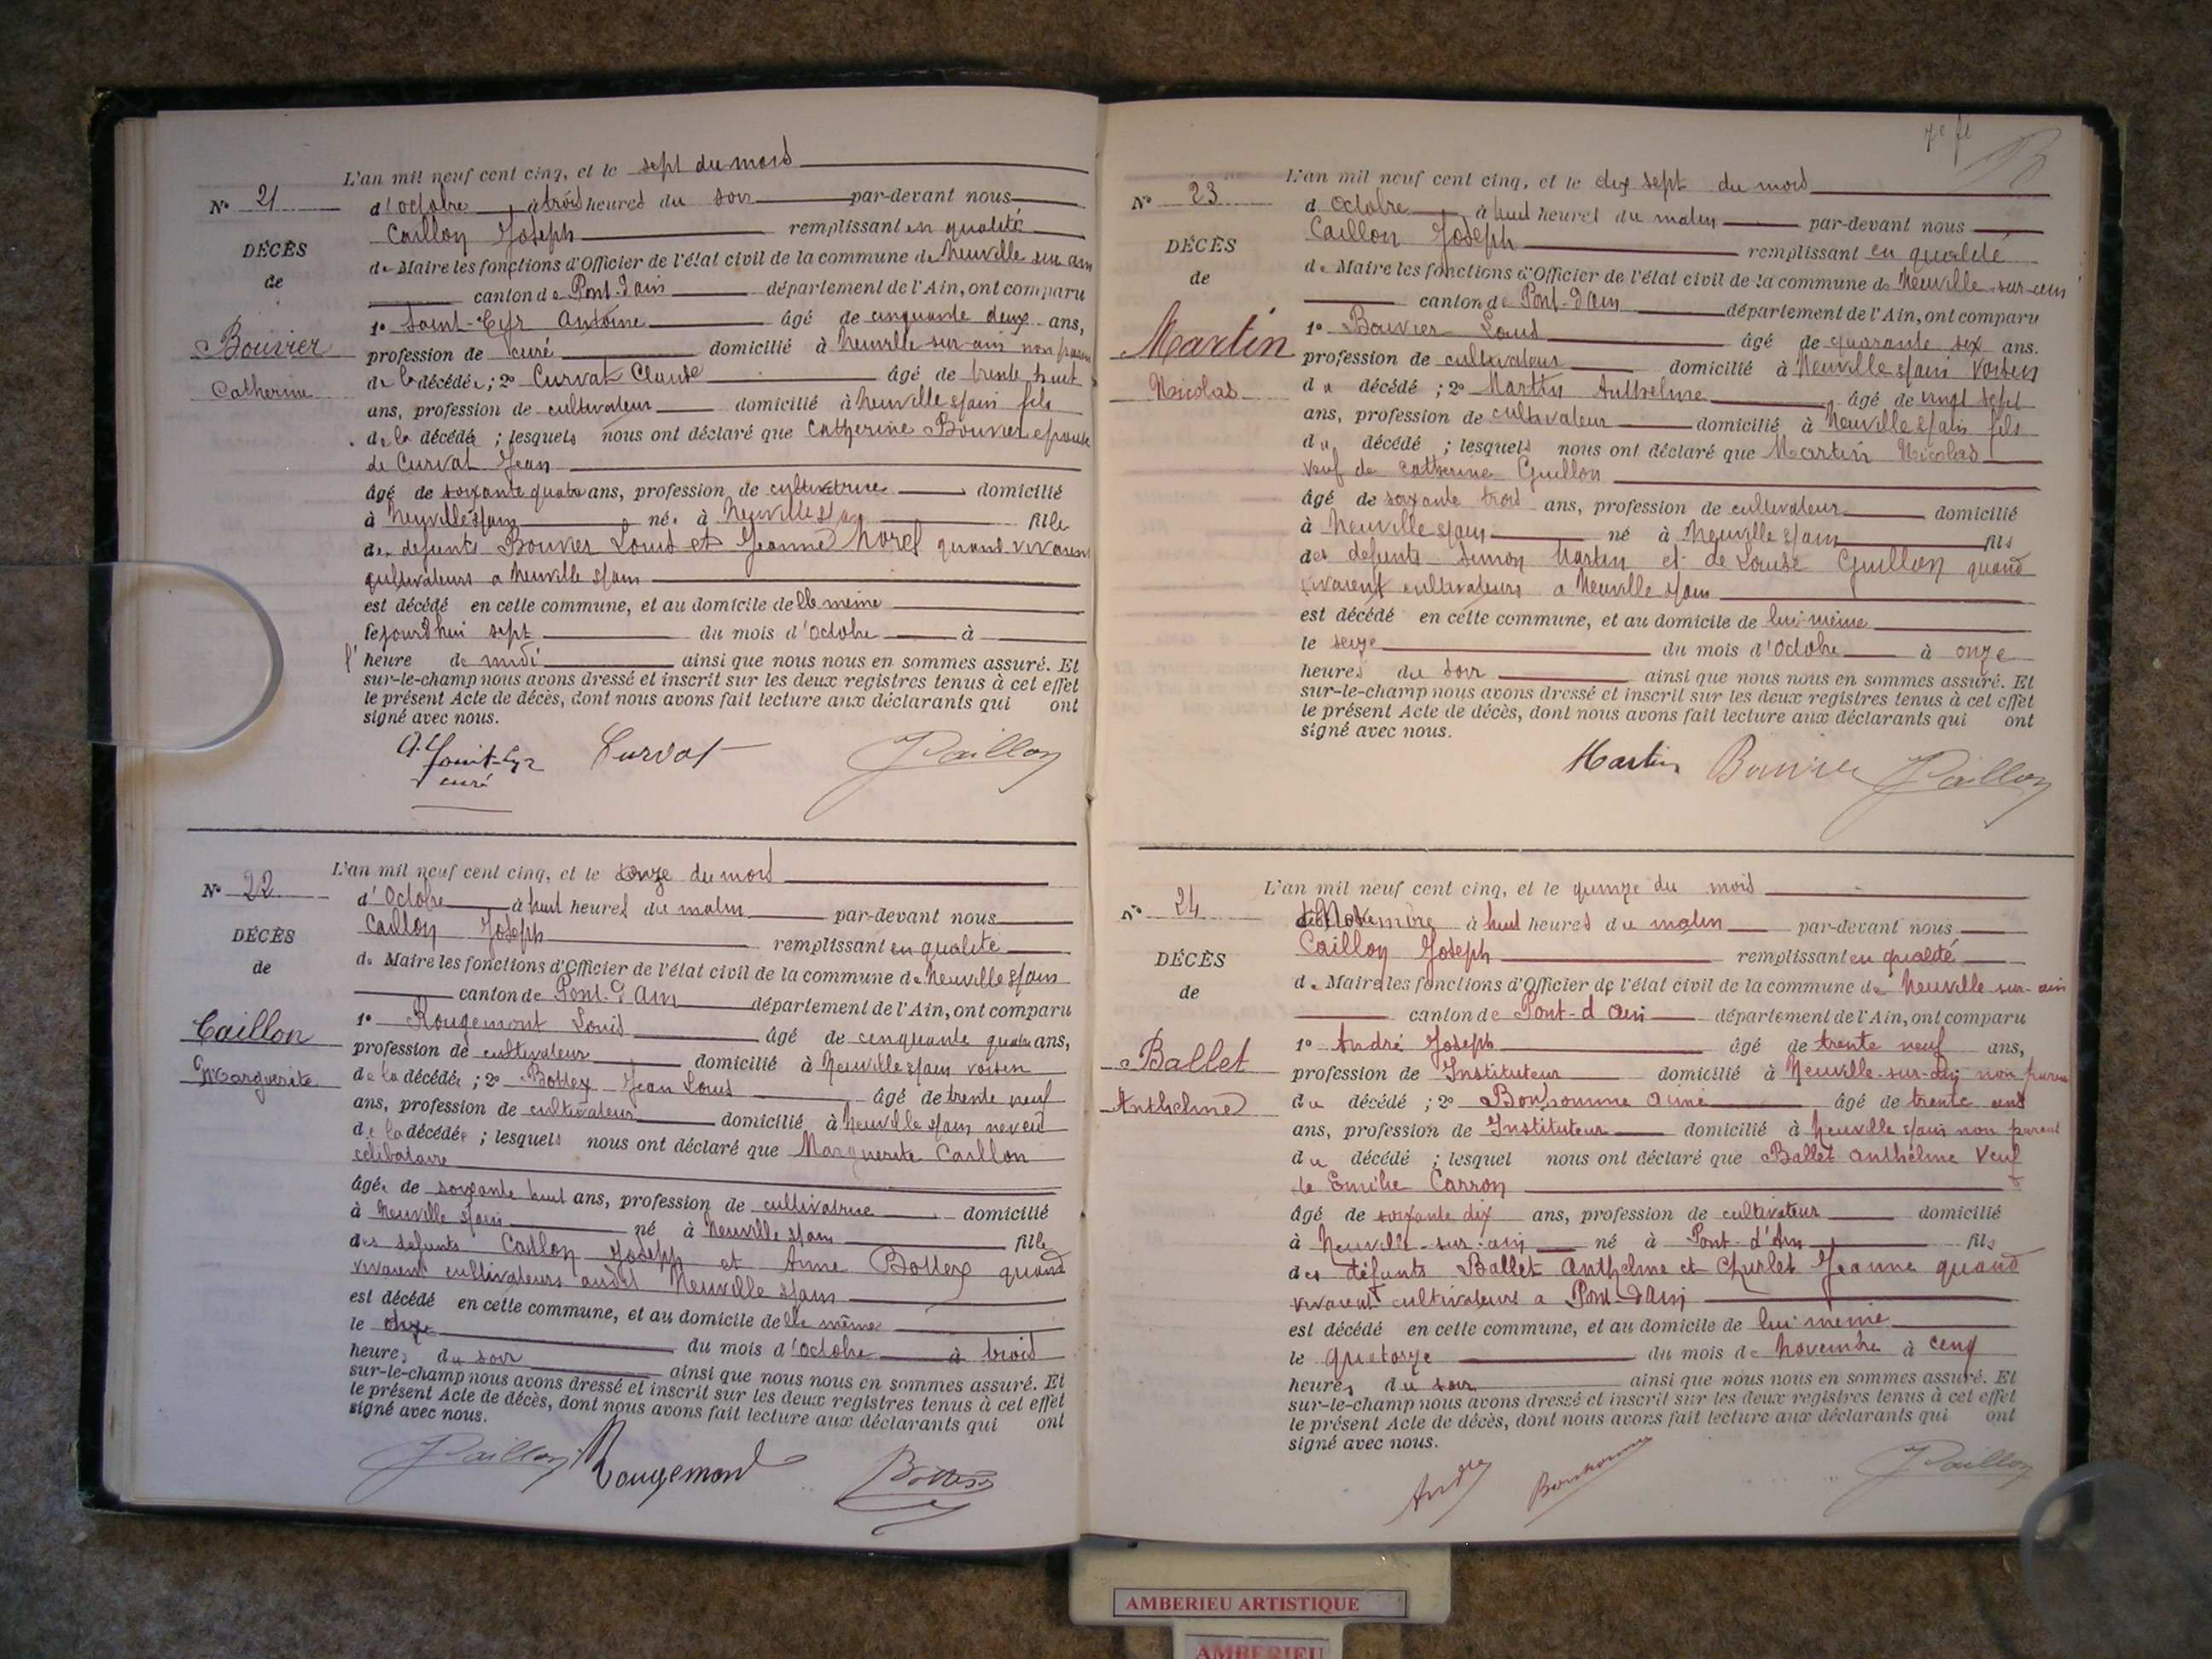 L'an mil neuf cent cinq, et le sept du mois
N° 21
d'octobre, à trois heures du soir par-devant nous
Caillon Joseph remplissant en qualité
DÉCÈS
de Maire les fonctions d'Officier de l'état civil de la commune de Neuville sur ain
de
canton de Pont-d'ain département de l'Ain, ont comparu
1° Saint-Cyr Antoine âgé de cinquante deux ans,
Bouvier
profession de curé domicilié à Neuville-sur-ain non parent
Catherine
de la décédée ; 2° Curvat Claude âgé de trente huit
ans, profession de cultivateur domicilié à Neuville s/ain fils
de la décédée ; lesquels nous ont déclaré que Catherine Bouvier epouse
de Curvat Jean
âgé de soixante quatre ans, profession de cultivatrice domicilié
à Neuville s/ain née à Neuville s/ain fille
des defunts Bouvier Louis et Jeanne quand vivaient
cultivateurs a Neuville s/ain
est décédé en cette commune, et au domicile de elle meme
le jourd'hui sept du mois d'octobre à
l'heure de midi ainsi que nous nous en sommes assuré. Et
sur-le-champ nous avons dressé et inscrit sur les deux registres tenus à cet effet
le présent Acte de décès, dont nous avons fait lecture aux déclarants qui ont
signé avec nous.
A. Saint-Cyr Curvat JCaillon
curé
L'an mil neuf cent cinq, et le onze du mois
N° 22
d'Octobre à huit heures du matin par-devant nous
Caillon Joseph remplissant en qualité
DÉCÈS
de Maire les fonctions d'Officier de l'état civil de la commune de Neuville s/ain
de
canton de Pont-d'Ain département de l'Ain, ont comparu
1° Rougemont Louis âgé de cinquante quatre ans,
Caillon
profession de cultivateur domicilié à Neuville s/ain voisin
Marguerite
de la décédée ; 2° Bottex Jean Louis âgé de trente neuf
ans, profession de cultivateur domicilié à Neuville s/ain neveu
de la décédée ; lesquels nous ont déclaré que Marguerite Caillon
celibataire
âgée de soixante huit ans, profession de cultivatrice domicilié
à Neuville s/ain né à Neuville s/ain fille
des defunts Caillon Joseph et Anne Bottex quand
vivaient cultivateurs audit Neuville s/ain
est décédé en cette commune, et au domicile de elle même
le du mois d'octobre à trois
heures du soir ainsi que nous nous en sommes assuré. Et
sur-le-champ nous avons dressé et inscrit sur les deux registres tenus à cet effet
le présent Acte de décès, dont nous avons fait lecture aux déclarants qui ont
signé avec nous.
JCaillon Rougemont Bottex
7e
L'an mil neuf cent cinq, et le dix sept du mois
N° 23
d Octobre à huit heures du matin par-devant nous
Caillon Joseph remplissant en qualité
DÉCÈS
de Maire les fonctions d'Officier de l'état civil de la commune de Neuville-sur-ain
de
canton de Pont-d'Ain département de l'Ain, ont comparu
1° Bouvier Louis âgé de quarante six ans.
Martin
profession de cultivateur domicilié à Neuville s/ain voisin
Nicolas
du décédé ; 2° Martin Anthelme âgé de vingt sept
ans, profession de cultivateur domicilié à Neuville s/ain fils
du décédé ; lesquels nous ont déclaré que Martin Nicolas
Veuf de Catherine Guillon
âgé de soixante trois ans, profession de cultivateur domicilié
à Neuville s/ain né à Neuville s/ain fils
des defunts Simon Martin et de Louise Guillon quand
vivaient cultivateurs a Neuville s/ain
est décédé en cette commune, et au domicile de lui-même
le seize du mois d'Octobre à onze
heures du soir ainsi que nous nous en sommes assuré. Et
sur-le-champ nous avons dressé et inscrit sur les deux registres tenus à cet effet
le présent Acte de décès, dont nous avons fait lecture aux déclarants qui ont
signé avec nous.
Martin Bouvier JCaillon
L'an mil neuf cent cinq, et le quinze du mois
N° 24
de Novembre à huit heures du matin par-devant nous
Caillon Joseph remplissant en qualité
DÉCÈS
de Maire les fonctions d'Officier de l'état civil de la commune de Neuville-sur-ain
de
canton de Pont-d'Ain département de l'Ain, ont comparu
1° André Joseph âgé de trente neuf ans,
Ballet
profession de Instituteur domicilié à Neuville-sur-Ain non parent
Anthelme
du décédé ; 2° Bonhomme Aimé âgé de trente
ans, profession de Instituteur domicilié à Neuville s/ain non parent
du décédé ; lesquel nous ont déclaré que Ballet Anthelme Veuf
de Emilie Carron
âgé de soixante dix ans, profession de cultivateur domicilié
à Neuville-sur-ain né à Pont-d'Ain fils
des défunts Ballet Anthelme et Churlet Jeanne quand
vivaient cultivateurs a Pont-d'Ain
est décédé en cette commune, et au domicile de lui même
le quatorze du mois de Novembre à cinq
heures du soir ainsi que nous nous en sommes assuré. Et
sur-le-champ nous avons dressé et inscrit sur les deux registres tenus à cet effet
le présent Acte de décès, dont nous avons fait lecture aux déclarants qui ont
signé avec nous.
André Bonhomme JCaillon
AMBERIEU ARTISTIQUE
AMBERIEU